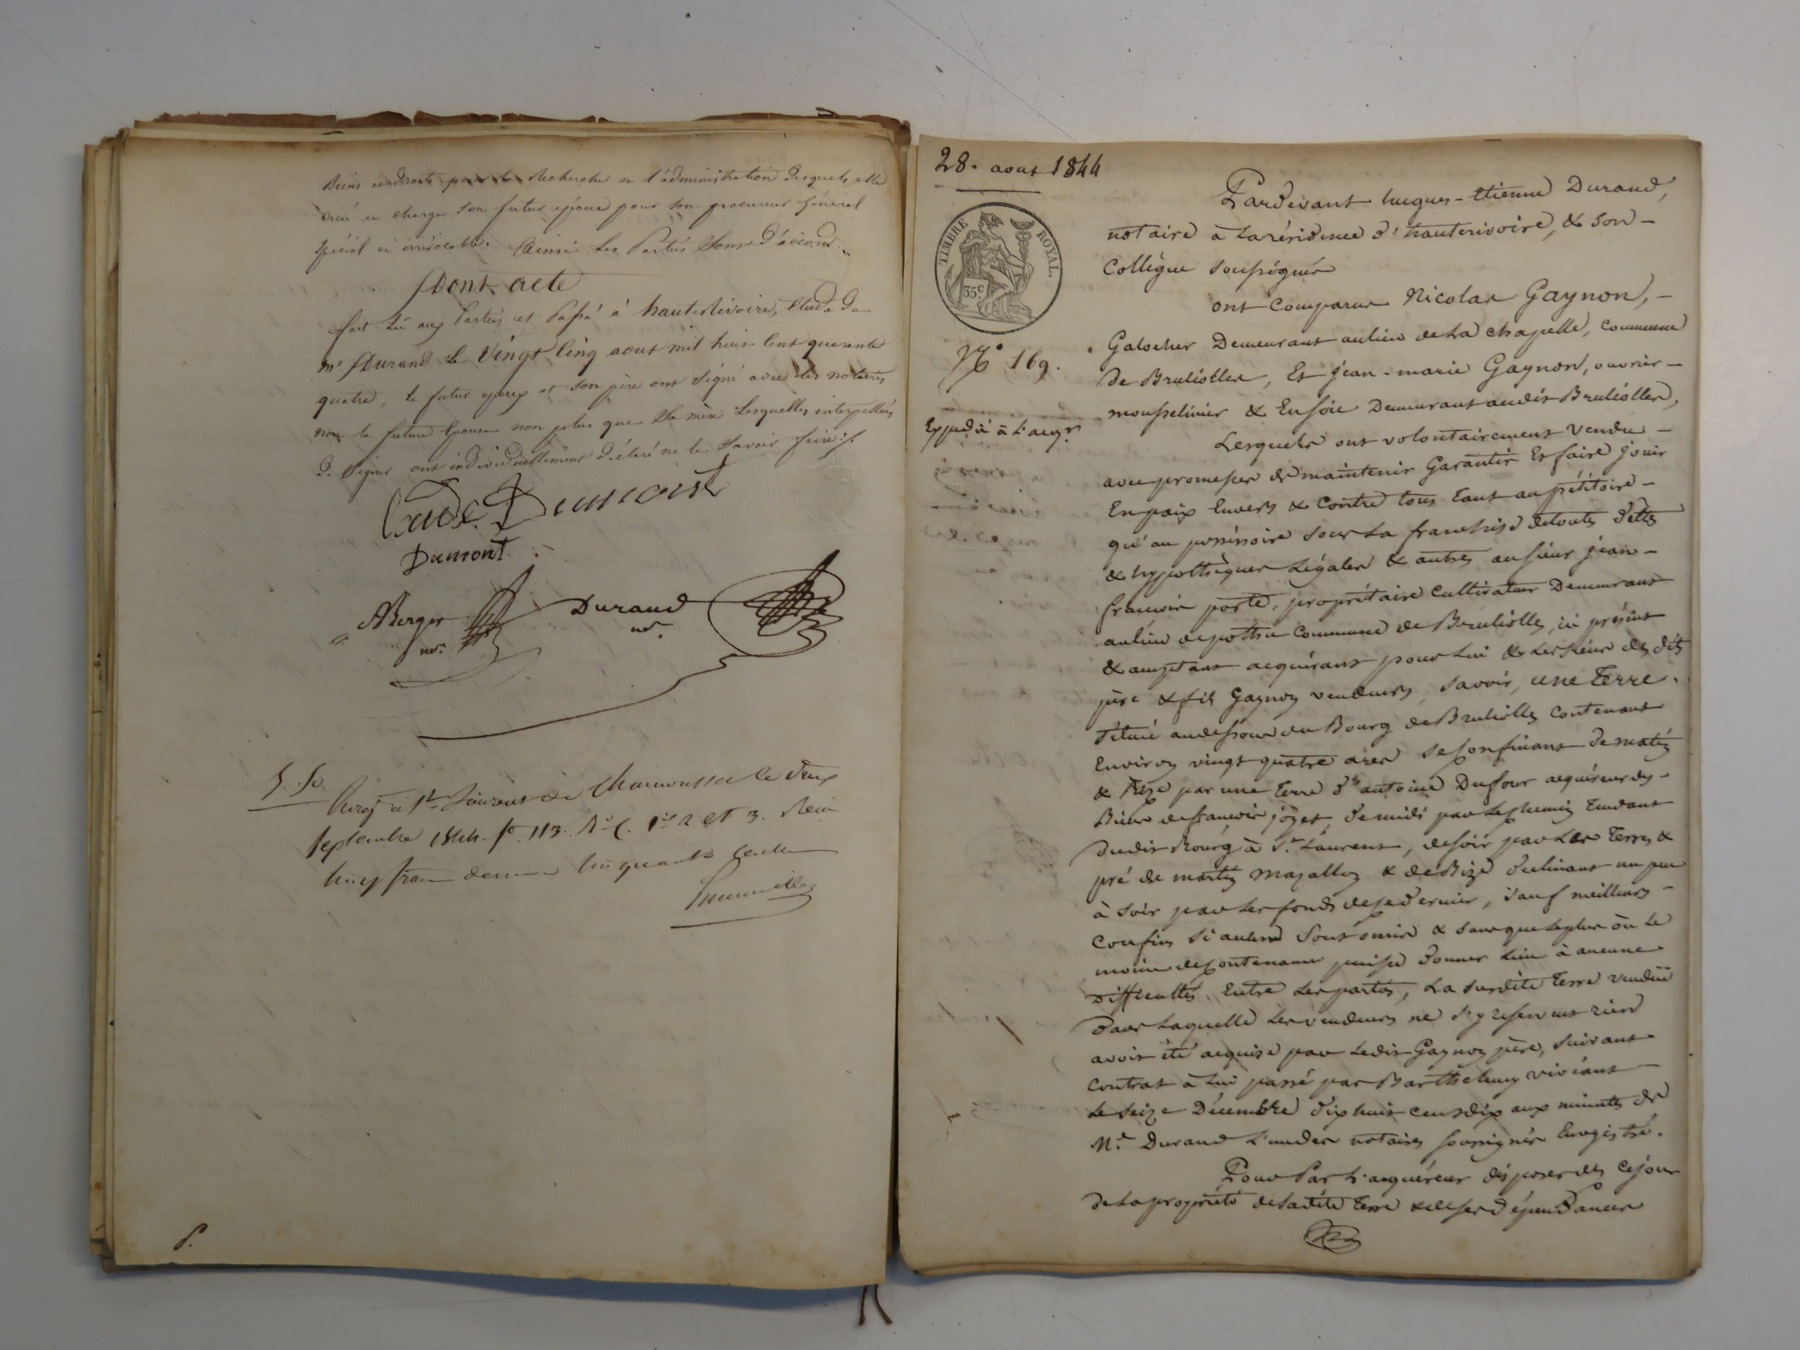 biens et droits pour la recherche et l'administration desquels elle
crée et charge son futur époux pour son procureur général
spécial et irrévocable. Ainsi les Parties sont d'accord.
Dont acte
fait lu aux Parties et Passé à hauterivoire, Etude de
me Durand le Vingt Cinq aout mil huit Cent quarente
quatre, le futur epoux et son père ont signé avec les notaires
non la future Epouse non plus que sa mère Lesquelles interpellées
de signer ont individuellement déclaré ne le savoir faire
Claude Dumont
Dumont
ABerger
nre.
Durand
nre.
Enreg à St Laurent de Chamousset le deux
septembre 1844. fo 113. Ro C. 1re 2 et 3. Reçu
cinq francs decime cinquante centimes
P.
28. aout 1844
TIMBRE ROYAL.
35c
No 169.
Expédié à L'acqr.
Pardevant hugues-etienne Durand,
notaire à La résidence d'hauterivoire, & son-
Collègue soussignés
ont Comparus Nicolas Gaynon,-
Galocher Demeurant au lieu de La chapelle, Commune
de Brulioller, Et jean-marie Gaynon, ouvrier-
mousselinier & En soie Demeurant audit Brulioller,
Lesquels ont volontairement vendu-
avec promesse de maintenir Garantir Et faire jouir
En paix Envers & Contre tous tant au pétitoire-
qu'au possessoire sous La franchise detoutes dettes
& hypothèques Légales & autres au sieur jean-
francois porte, propriétaire cultivateur Demeurant
au lieu de Commune de Bruliolles, ici présent
& acceptant acquérant pour Lui & Les sieurs des dits
père & fils Gaynon vendeurs, savoir, une Terre.
située au dessous du Bourg de Brulioller Contenant
Environ vingt quatre ares se Confinant De matin
& Bize par une Terre d'antoine Dufour acquéreur des-
Biens de francois joyet, de midi par Le chemin Tendant
dudit Bourg à St. Laurent, de soir par Les Terres &
pré de martin & de Bize declinant un peu
à soir par Les fonds de ce dernier, sauf meilleurs-
Confins si aucuns sont omis & sans que Le plus où Le
moins de Contenance puisse donner Lieu à aucune
Difficultés Entre Les parties, La susdite Terre vendüe
dans Laquelle Les vendeurs ne s'y reservent rien
avoir été acquise par Ledit Gaynon père, suivant
Contrat à Lui passé par Barthelemy viviant-
Le seize Décembre dix huit cent dix aux minutes de
Me. Durand L'un des notaires soussignés Enregistré.
Pour Par L'acquéreur disposer dès Ce jour
de La propriété de Ladite Terre & de ses dépendances